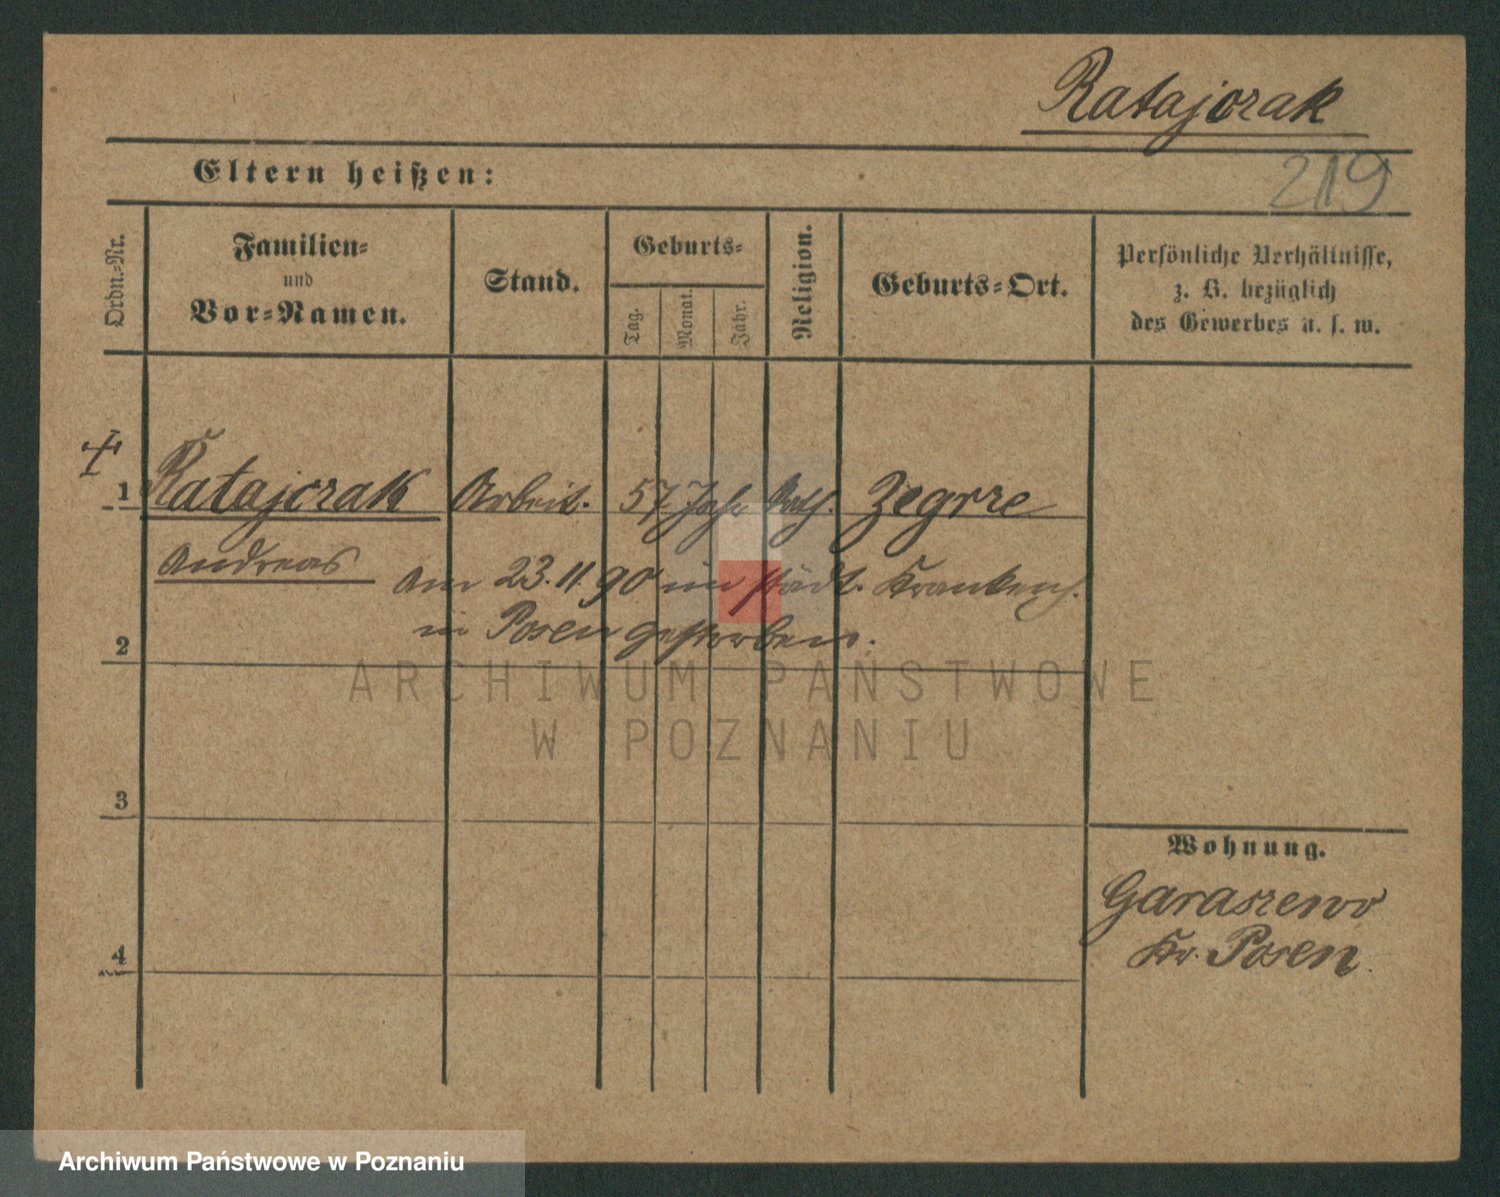 Ratajczak
219
Eltern heißen:
Ordn.-Nr.
Familien-
und
Vor-Namen.
Stand.
Geburts-
Tag.
Monat.
Jahr.
Religion.
Geburts-Ort.
Persönliche Verhältnisse,
z. B. bezüglich
des Gewerbes u. s. w.
1 Ratajczak Arbeit. 57 Jahr Kath. Zegrze
Andreas
am 23.11.90 im städt. Krankenh.
in Posen gestorben.
2
3
4
Wohnung.
Garaszewo
Kr. Posen
ARCHIWUM PAŃSTWOWE
W POZNANIU
Archiwum Państwowe w Poznaniu